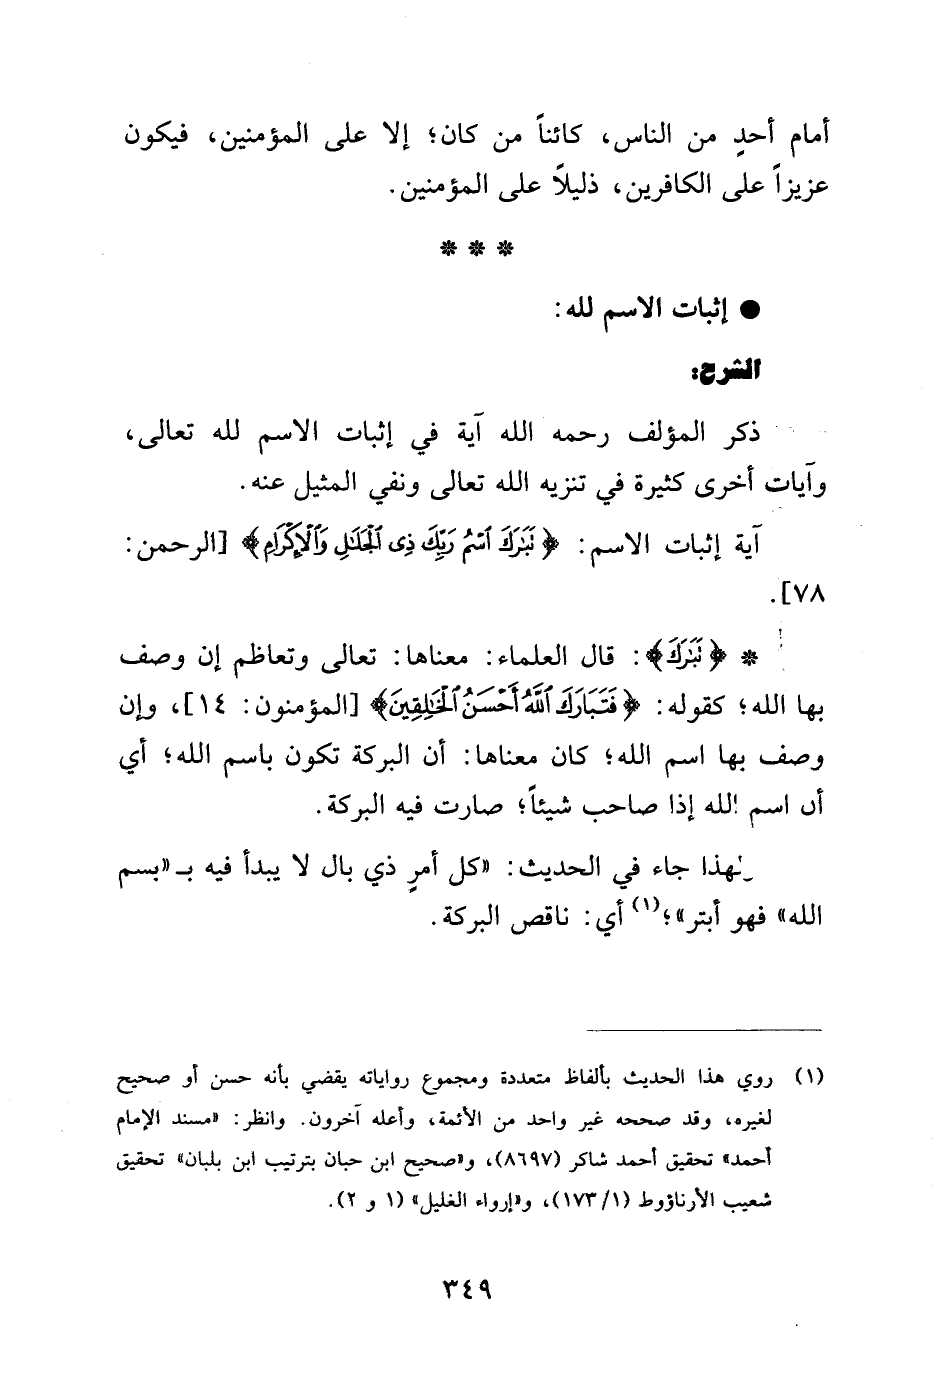 أمام أحدٍ من الناس، كائناً من كان؛ إلا على المؤمنين، فيكون
عزيزاً على الكافرين، ذليلاً على المؤمنين.
* * *
● إثبات الاسم لله:
الشرح:
ذكر المؤلف رحمه الله آية في إثبات الاسم لله تعالى،
وآيات أخرى كثيرة في تنزيه الله تعالى ونفي المثيل عنه.
آية إثبات الاسم: ﴿تَبَٰرَكَ ٱسۡمُ رَبِّكَ ذِى ٱلۡجَلَٰلِ وَٱلۡإِكۡرَامِ﴾ [الرحمن:
٧٨].
* ﴿تَبَٰرَكَ﴾: قال العلماء: معناها: تعالى وتعاظم إن وصف
بها الله؛ كقوله: ﴿فَتَبَارَكَ ٱللَّهُ أَحۡسَنُ ٱلۡخَٰلِقِينَ﴾ [المؤمنون: ١٤]، وإن
وصف بها اسم الله؛ كان معناها: أن البركة تكون باسم الله؛ أي
أن اسم الله إذا صاحب شيئاً؛ صارت فيه البركة.
ولهذا جاء في الحديث: «كل أمرٍ ذي بال لا يبدأ فيه بـ«بسم
الله» فهو أبتر»؛(١) أي: ناقص البركة.
(١) روي هذا الحديث بألفاظ متعددة ومجموع رواياته يقضي بأنه حسن أو صحيح
لغيره، وقد صححه غير واحد من الأئمة، وأعله آخرون. وانظر: «مسند الإمام
أحمد» تحقيق أحمد شاكر (٨٦٩٧)، و«صحيح ابن حبان بترتيب ابن بلبان» تحقيق
شعيب الأرناؤوط (١/ ١٧٣)، و«إرواء الغليل» (١ و ٢).
٣٤٩